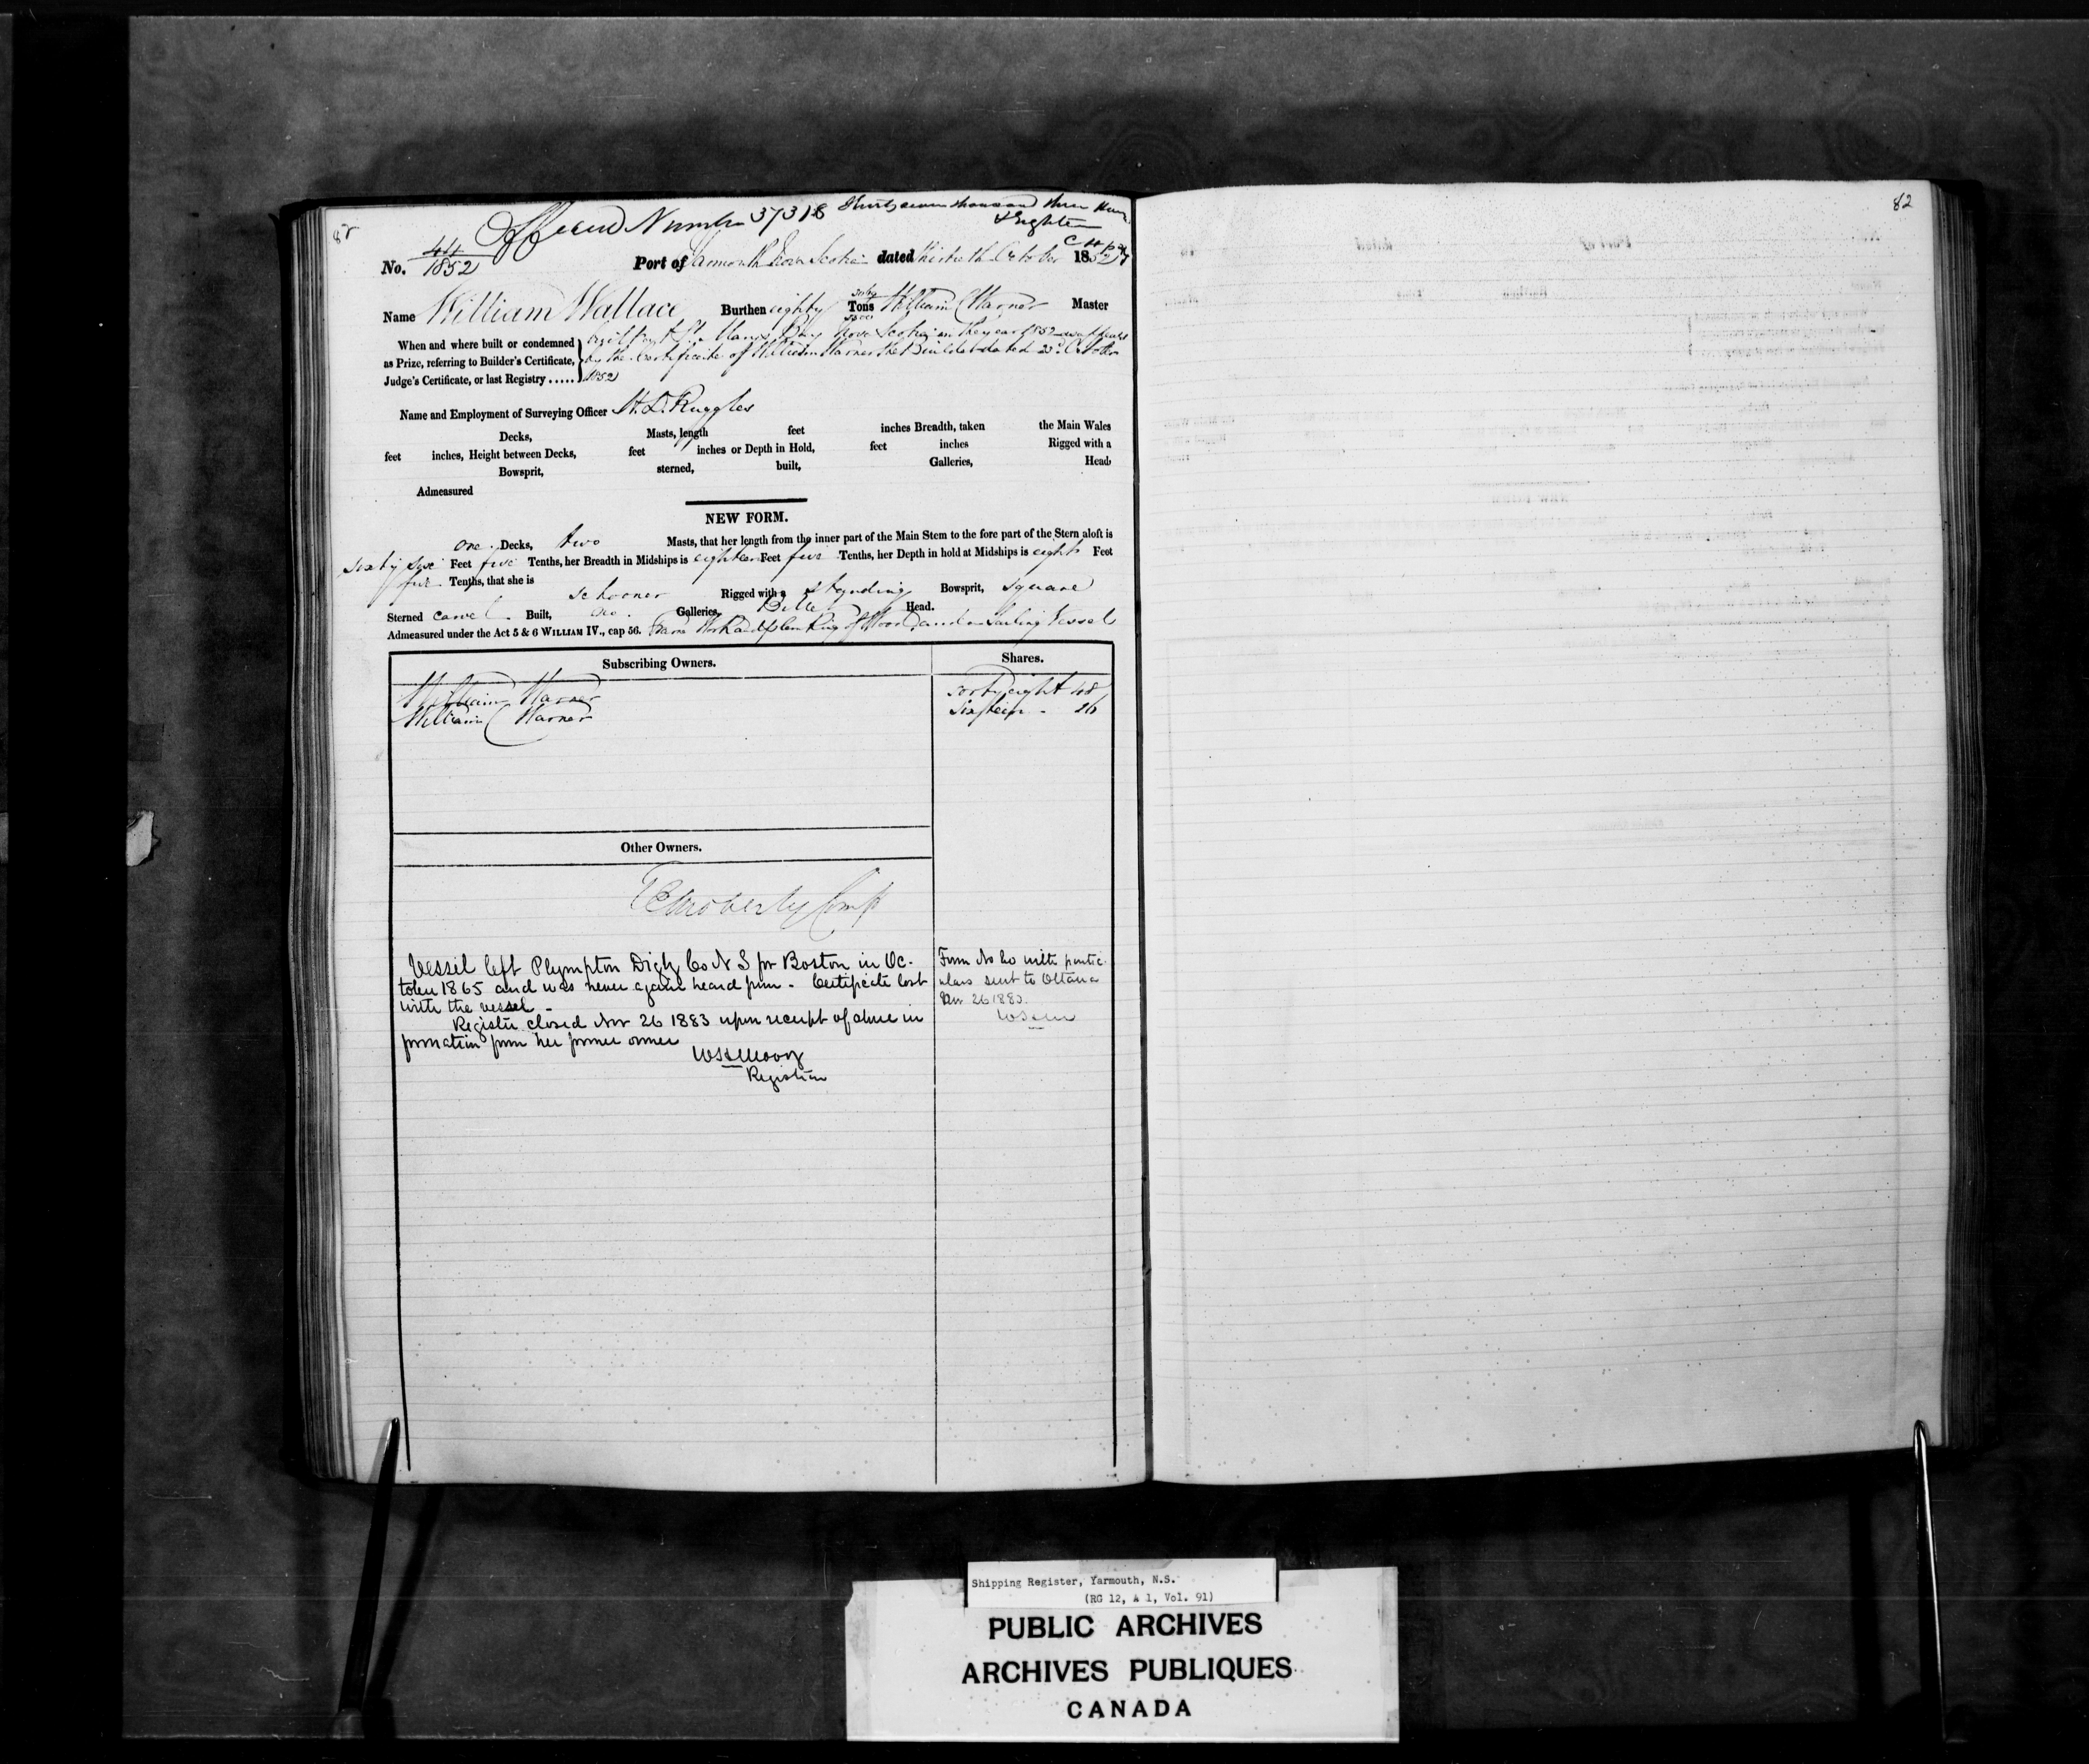 Official Number 37318 Thirty seven thousand three Hun
& Eighteen
82
No. 44/1852 Port of Yarmouth Nova Scotia dated thirtieth October 1852
Name William Wallace Burthen eighty Tons William C Warner Master
When and where built or condemned
as Prize, referring to Builder's Certificate,
Judge's Certificate, or last Registry .....
built at St Marys Bay Nova Scotia in the year 1852 as appears
by the Certificate of William Warner the Builder dated 23d October
1852
Name and Employment of Surveying Officer H. D. Ruggles
Decks, Masts, length feet inches Breadth, taken the Main Wales
feet inches, Height between Decks, feet inches or Depth in Hold, feet inches Rigged with a
Bowsprit, sterned, built, Galleries, Head,
Admeasured
NEW FORM.
one Decks, two Masts, that her length from the inner part of the Main Stem to the fore part of the Stern aloft is
sixty six Feet five Tenths, her Breadth in Midships is eighteen Feet five Tenths, her Depth in hold at Midships is eight Feet
Tenths, that she is schooner Rigged with a standing Bowsprit, square
Sterned carvel Built, no Galleries, Billet Head.
Admeasured under the Act 5 & 6 WILLIAM IV., cap 56. Frame Work and planking of Wood and a Sailing Vessel
Subscribing Owners. Shares.
William Warner forty eight 48
William C Warner sixteen - 16
Other Owners.
Vessel left Plympton Digby Co N S for Boston in Oc-
tober 1865 and was never again heard from - Certificate lost
with the vessel -
Register closed Nov 26 1883 upon receipt of above in
formation from her former owner
WH Moody
Registrar
Form No 20 with partic-
ulars sent to Ottawa
Nov 26 1883.
Shipping Register, Yarmouth, N.S.
(RG 12, A 1, Vol. 91)
PUBLIC ARCHIVES
ARCHIVES PUBLIQUES
CANADA